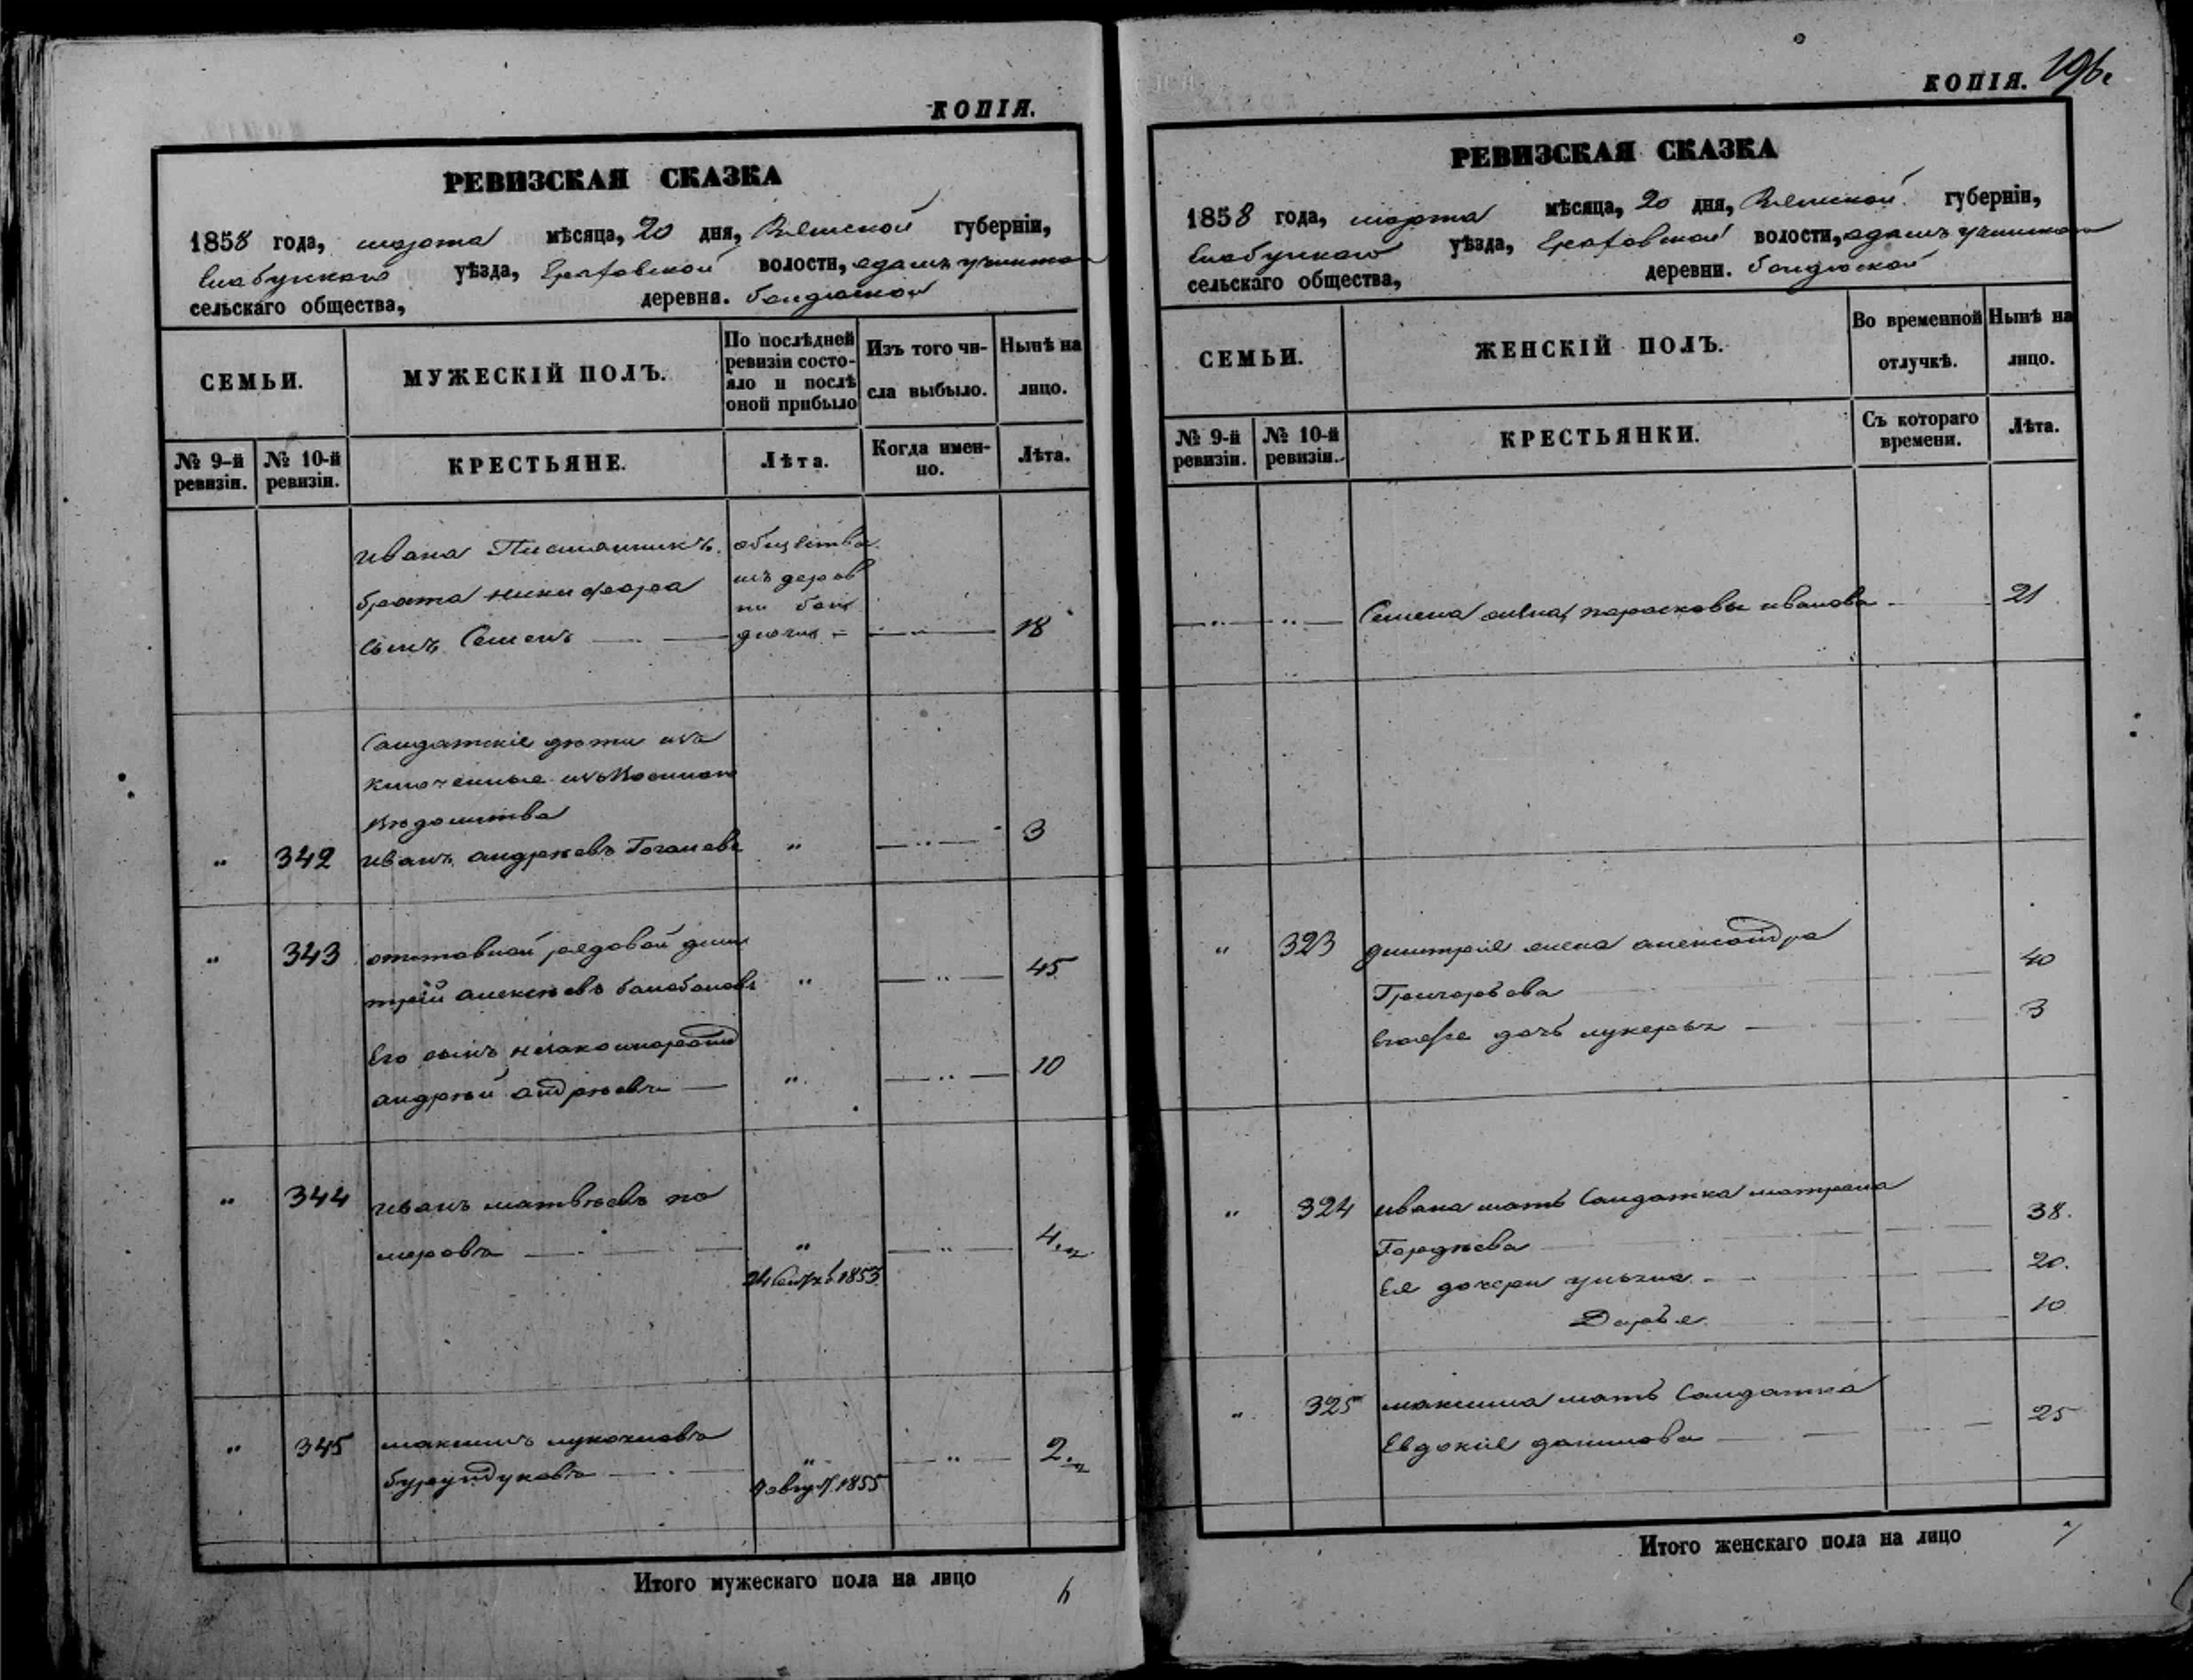 КОПІЯ.
РЕВИЗСКАЯ СКАЗКА
1858 года, марта мѣсяца, 20 дня, Вятской губерніи,
Елабужскаго уѣзда, волости,
сельскаго общества, деревня.
СЕМЬИ.
МУЖЕСКІЙ ПОЛЪ.
По послѣдней ревизіи состояло и послѣ оной прибыло
Изъ того числа выбыло.
Нынѣ на лицо.
№ 9-й ревизіи.
№ 10-й ревизіи.
КРЕСТЬЯНЕ.
Лѣта.
Когда именно.
Лѣта.
Ивана общества
брата Никифора изъ дерев
сынъ Семенъ 18
Солдатскіе дѣти ис
ключенные изъ Военнаго
Вѣдомства
" 342 Иванъ Андреевъ " 3
" 343 отставной рядовой Дми
трій Алексѣевъ Балобановъ " 45
Его сынъ незаконнорожд
Андрѣй Андрѣевъ " 10
" 344 Иванъ Матвѣевъ По
маровъ " 4
24 1853
" 345 Максимъ
Бурундуковъ " 2
9 авгус. 1855
Итого мужескаго пола на лицо 6
КОПІЯ. 196
РЕВИЗСКАЯ СКАЗКА
1858 года, марта мѣсяца, 20 дня, Вятской губерніи,
Елабужскаго уѣзда, волости,
сельскаго общества, деревни.
СЕМЬИ.
ЖЕНСКІЙ ПОЛЪ.
Во временной отлучкѣ.
Нынѣ на лицо.
№ 9-й ревизіи.
№ 10-й ревизіи.
КРЕСТЬЯНКИ.
Съ котораго времени.
Лѣта.
Семена жена Парасковья Иванова 21
" 323 Дмитрія жена Александра 40
Григорьева
дочь Лукерья 3
" 324 Ивана мать Солдатка Матрена 38.
Гордѣева
Ея дочери Ульяна 20.
Дарья 10
" 325 Максима мать Солдатка
Евдокія Данилова 25
Итого женскаго пола на лицо 7